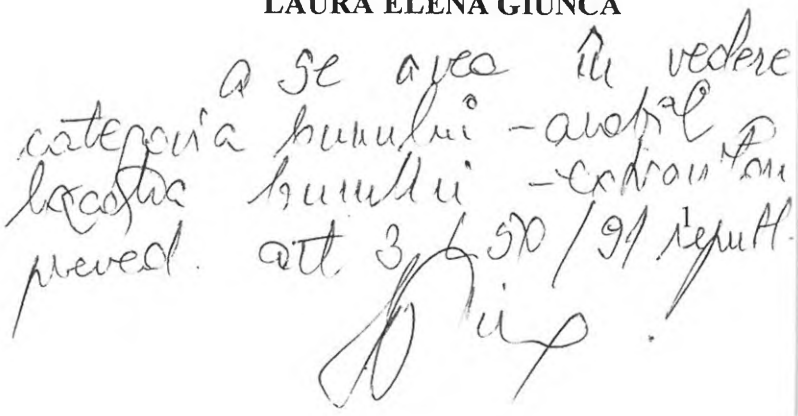 LAURA ELENA GIUNCA
a se avea în vedere
categoria bunului - arabil
locația bunului - extravilan
preved. art. 3 L 50/91 republ.
1